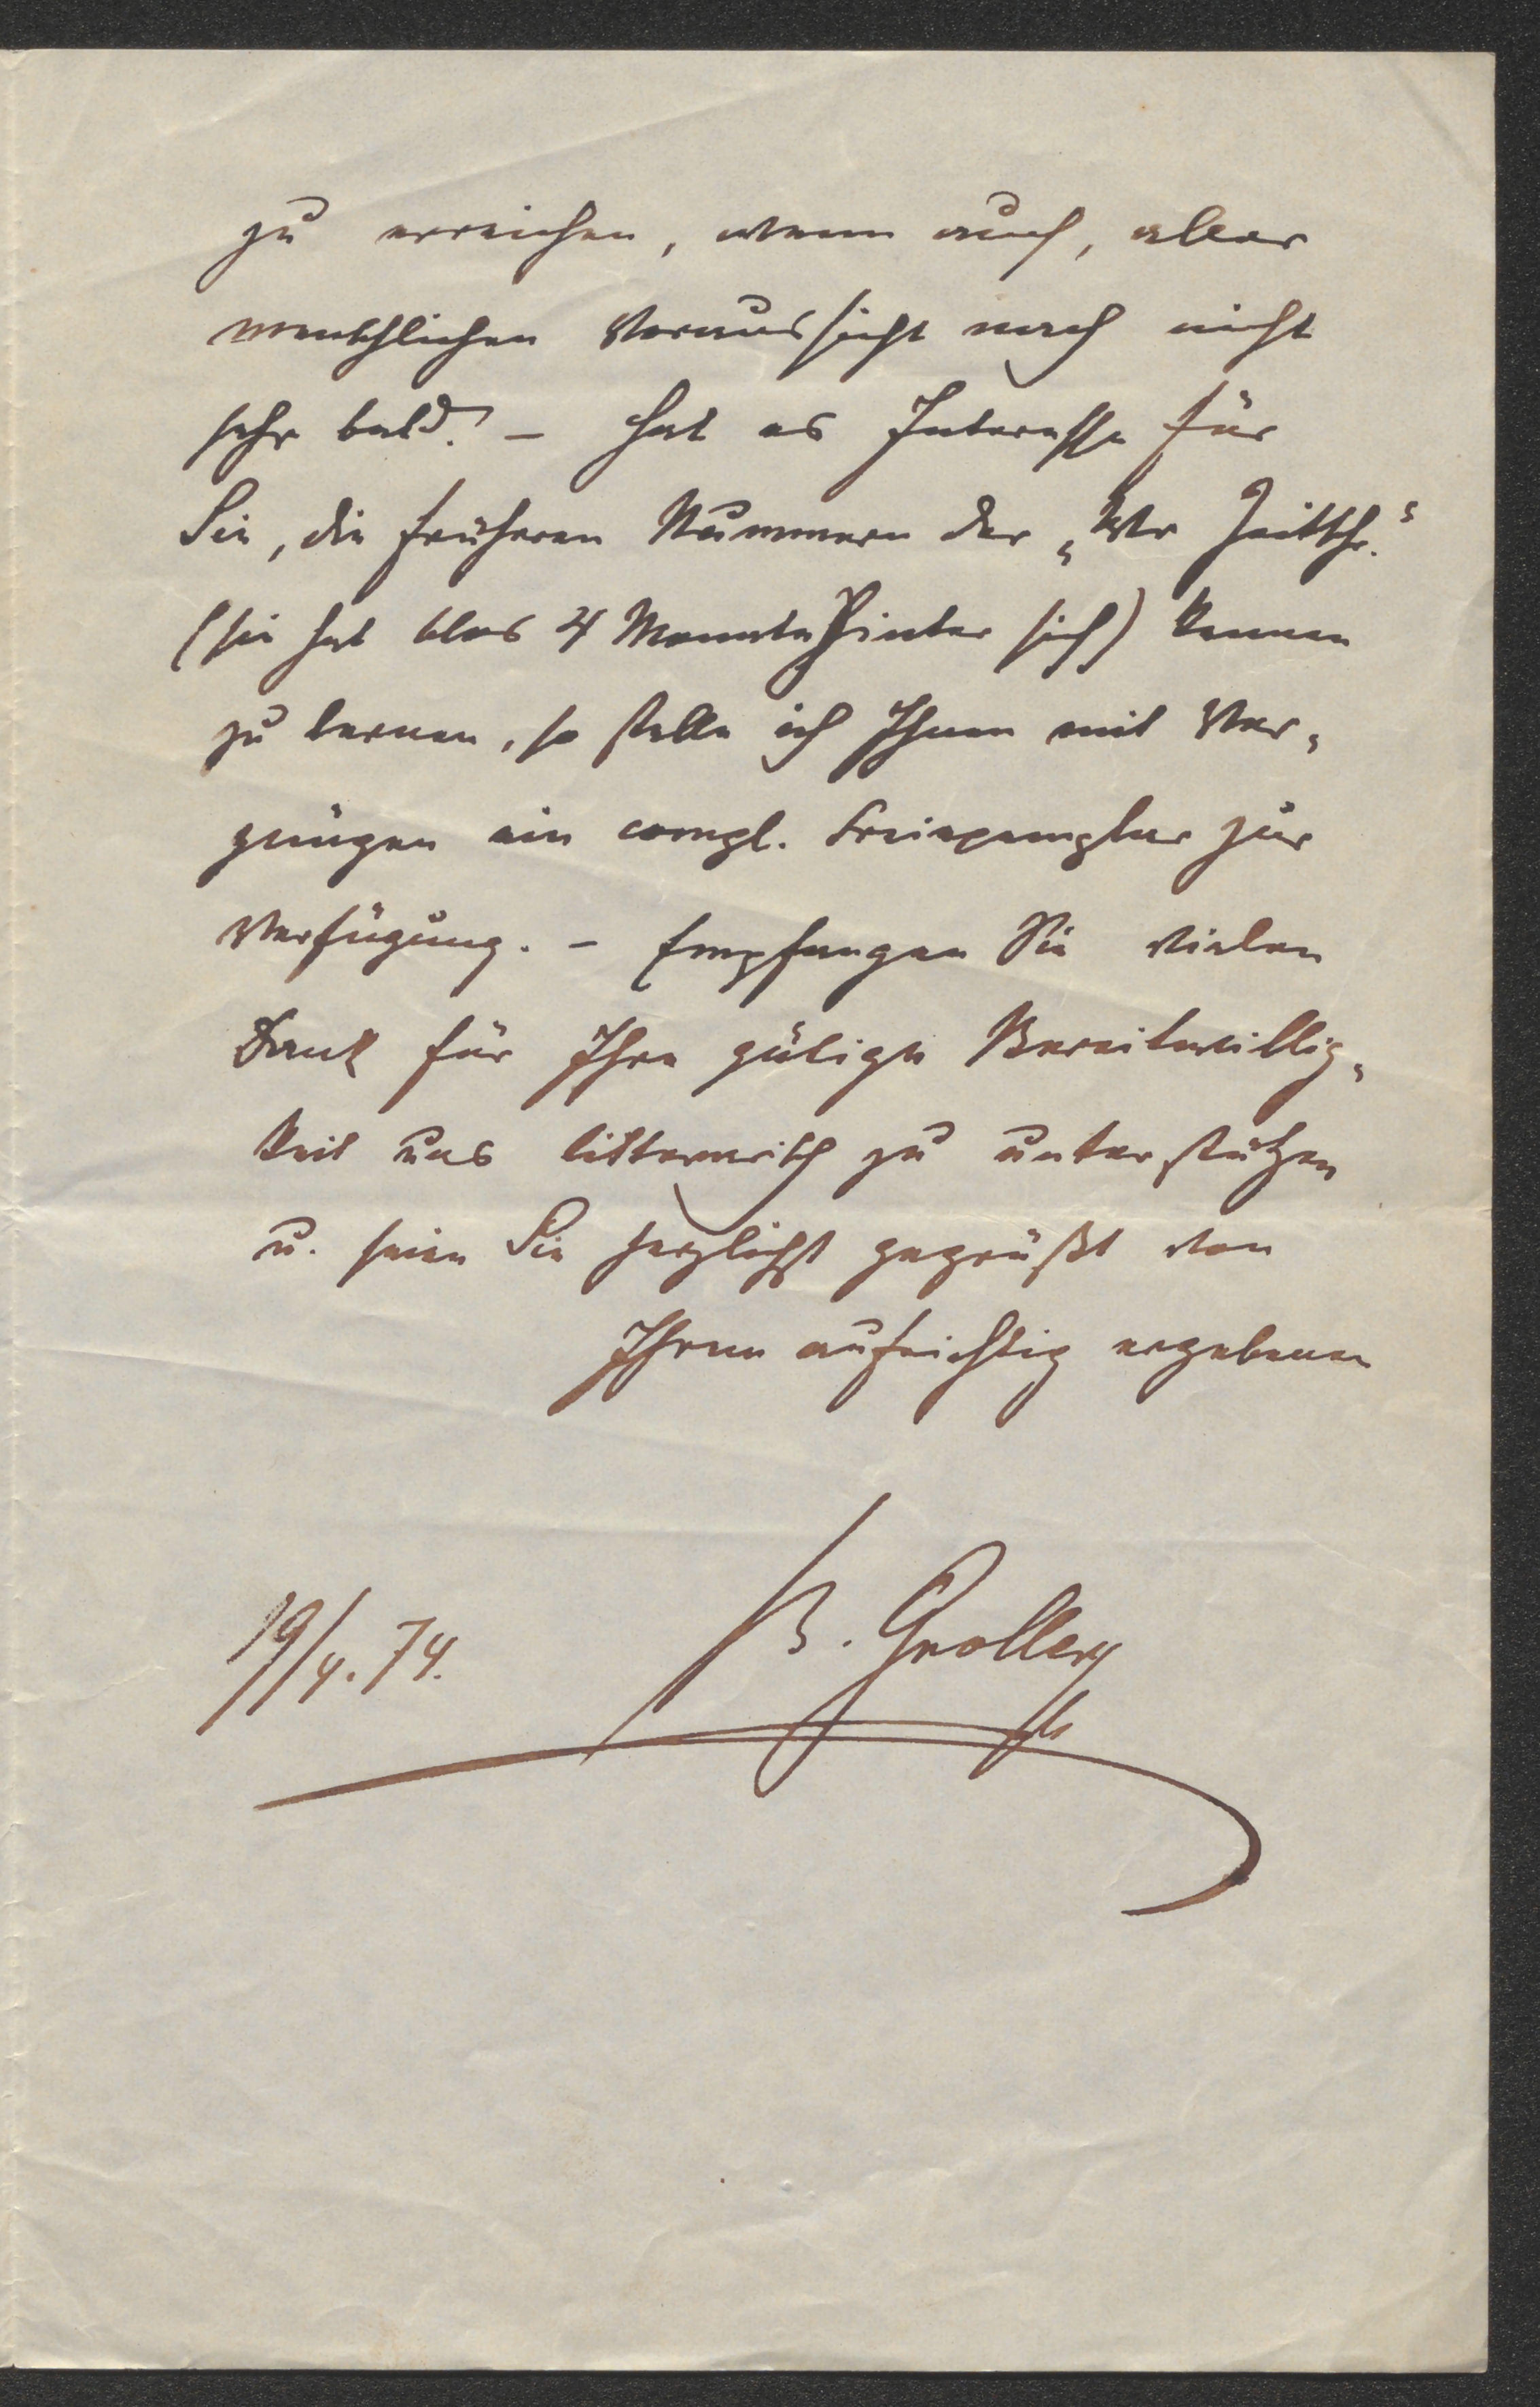 zu erreichen, wenn auch, aller
menschlichen Voraussicht nach nicht
sehr bald. – Hat es Interesse für
Sie, die früheren Nummern der „Wr Zeitschr.“
(sie hat blos 4 Monate hinter sich) kennen
zu lernen, so stelle ich Ihnen mit Ver-
gnügen ein compl. Freiexemplar zur
Verfügung. – Empfangen Sie vielen
Dank für Ihre gütige Bereitwillig-
keit uns litterarisch zu unterstützen
u. seien Sie herzlichst gegrüßt von
Ihrem aufrichtig ergebenen
19/4. 74. B. Groller